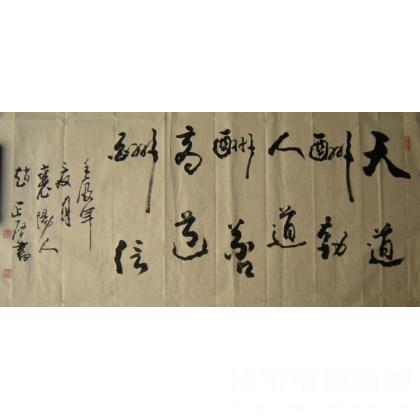 天道
酬勤
人道
酬善
商道
酬信
壬辰年
夏月
襄陽人
趙正書